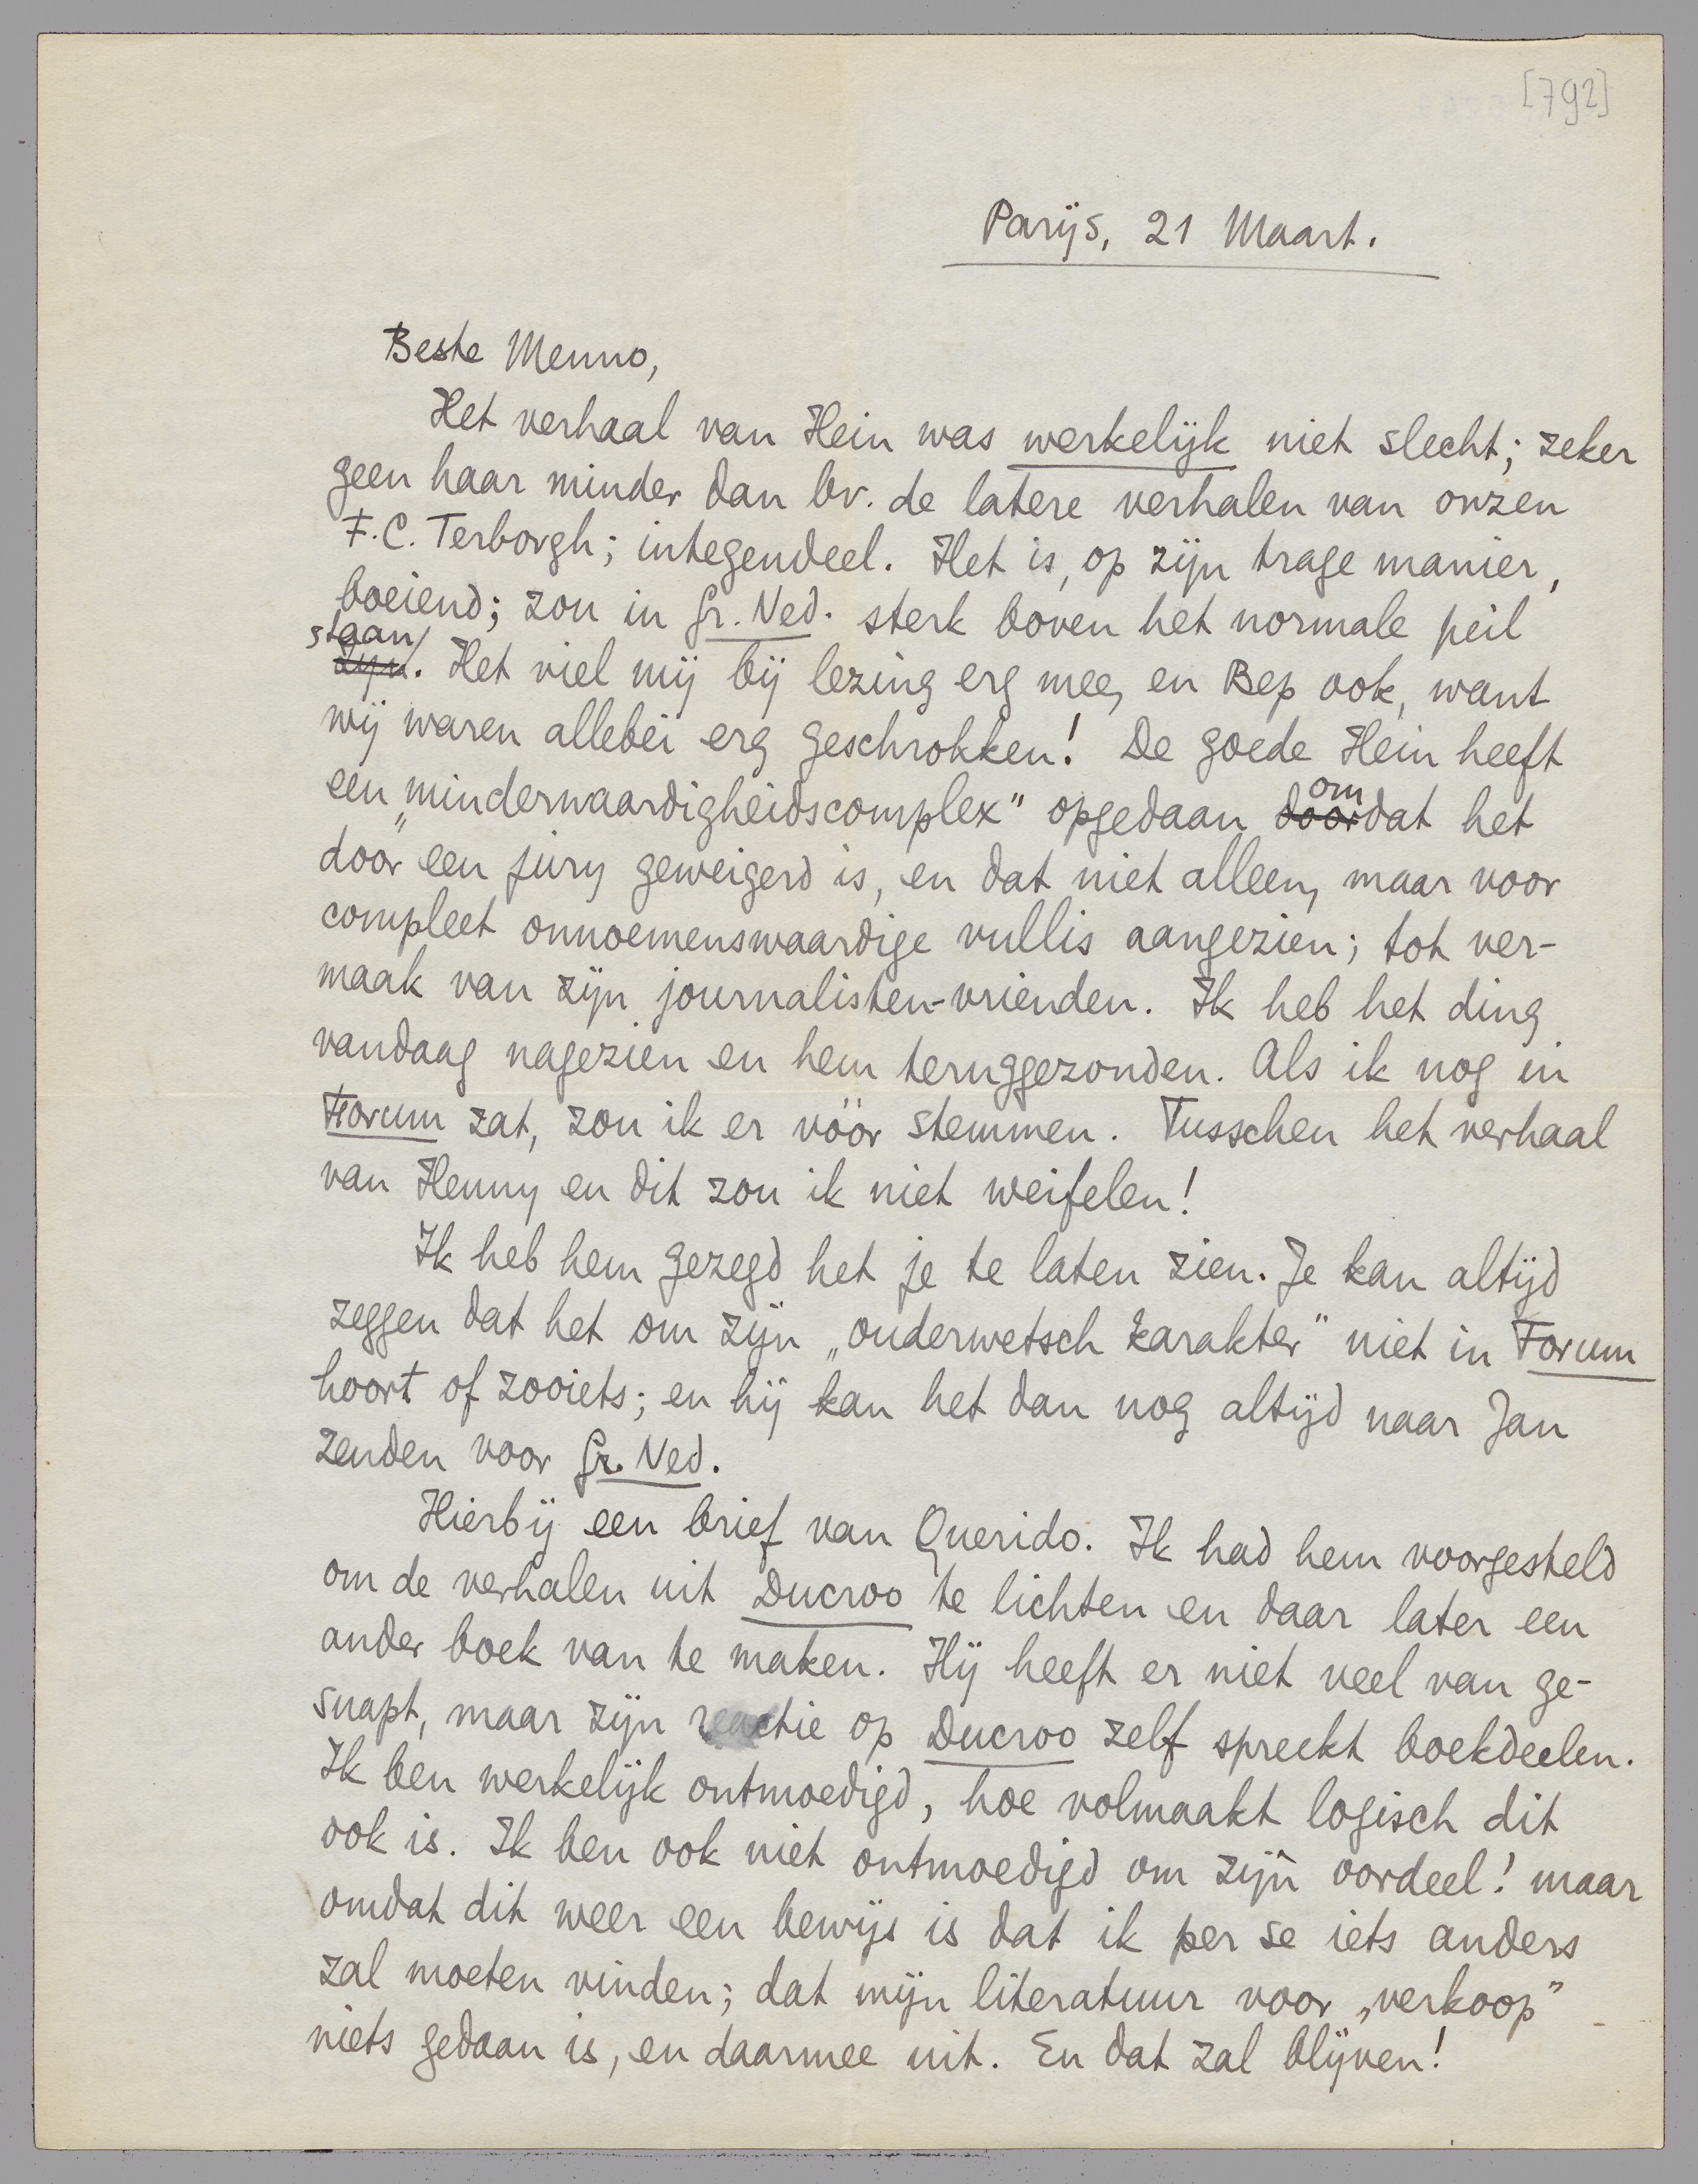 [792]
Parijs, 21 Maart.
Beste Menno,
Het verhaal van Hein was werkelijk niet slecht; zeker
geen haar minder dan bv. de latere verhalen van onzen
F.C. Terborgh; integendeel. Het is, op zijn trage manier,
boeiend; zou in Gr. Ned. sterk boven het normale peil
staan
zijn. Het viel mij bij lezing erg mee, en Bep ook, want
wij waren allebei erg geschrokken! De goede Hein heeft
een „minderwaardigheidscomplex" opgedaan doordat het
om
door een jury geweigerd is, en dat niet alleen, maar voor
compleet onnoemenswaardige vullis aangezien; tot ver-
maak van zijn journalisten-vrienden. Ik heb het ding
vandaag nagezien en hem teruggezonden. Als ik nog in
Forum zat, zou ik er vóór stemmen. Tusschen het verhaal
van Henny en dit zou ik niet weifelen!
Ik heb hem gezegd het je te laten zien. Je kan altijd
zeggen dat het om zijn „ouderwetsch karakter" niet in Forum
hoort of zooiets; en hij kan het dan nog altijd naar Jan
zenden voor Gr. Ned.
Hierbij een brief van Querido. Ik had hem voorgesteld
om de verhalen uit Ducroo te lichten en daar later een
ander boek van te maken. Hij heeft er niet veel van ge-
snapt, maar zijn reactie op Ducroo zelf spreekt boekdeelen.
Ik ben werkelijk ontmoedigd, hoe volmaakt logisch dit
ook is. Ik ben ook niet ontmoedigd om zijn oordeel! maar
omdat dit weer een bewijs is dat ik per se iets anders
zal moeten vinden; dat mijn literatuur voor „verkoop"
niets gedaan is, en daarmee uit. En dat zal blijven!